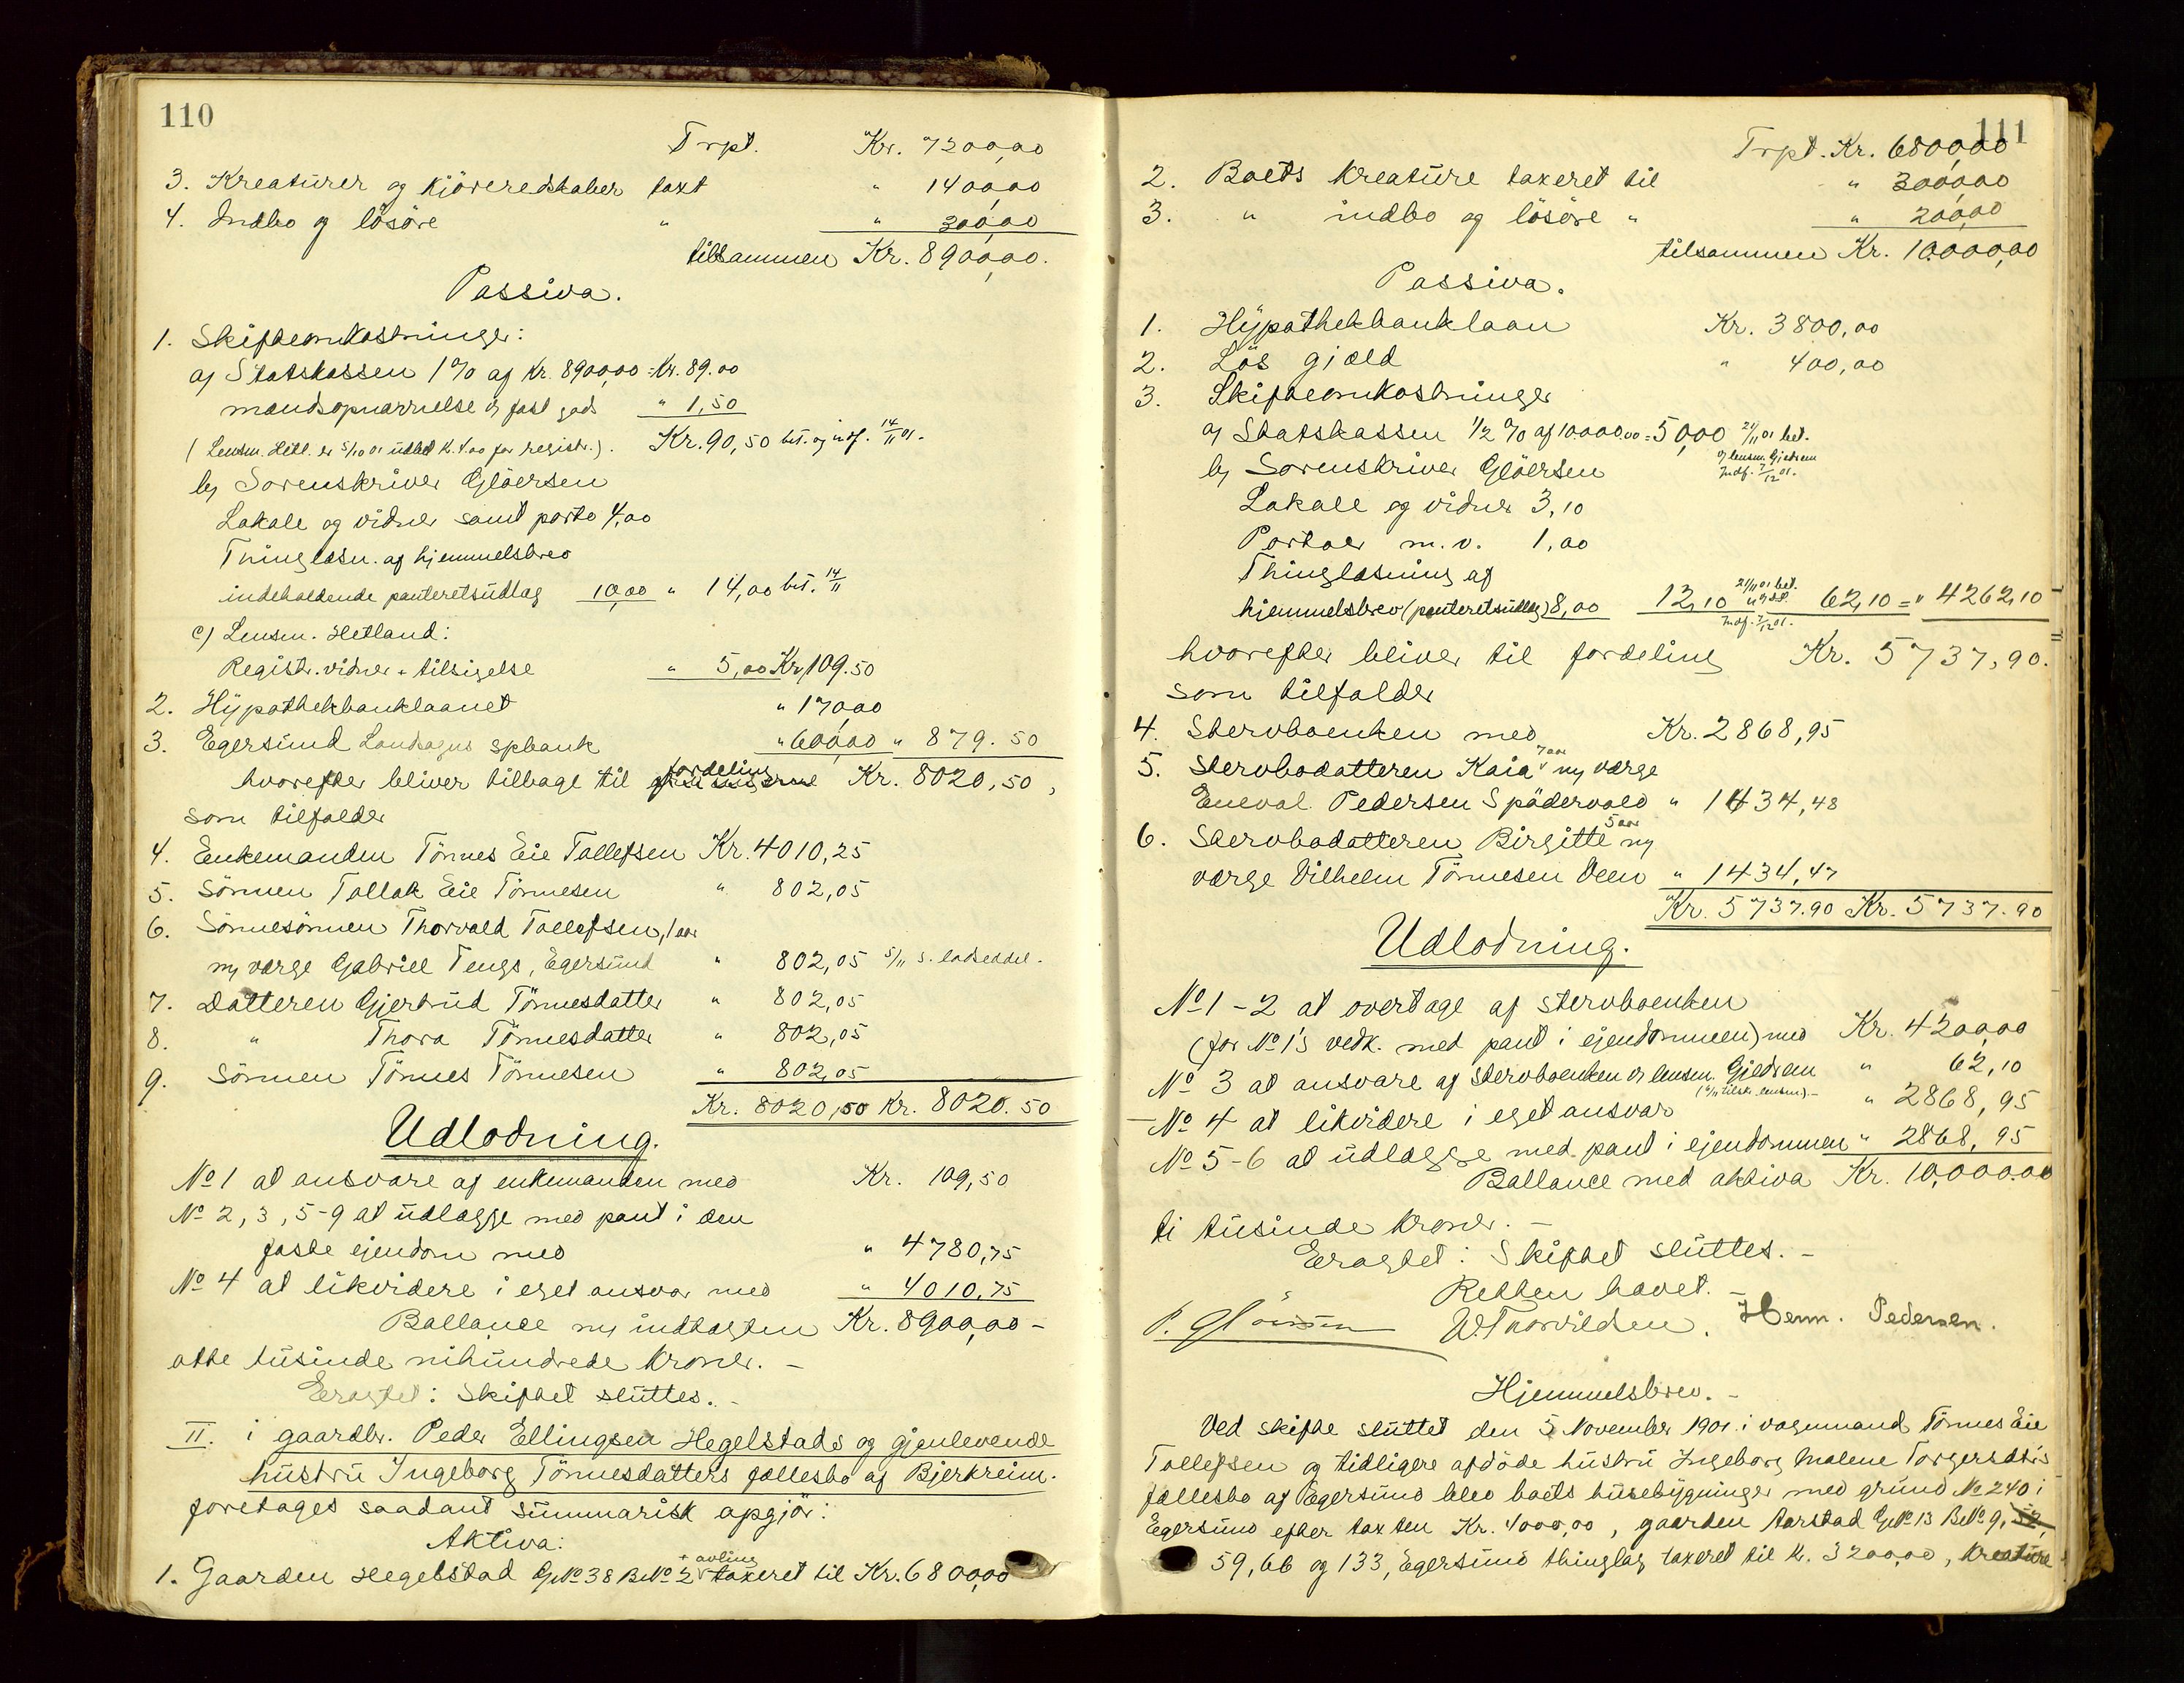 110
Trpt. Kr. 7200,00
3. Kreaturer og kjöreredskaber taxt " 1400,00
4. Indbo og lösöre " " 300,00
tilsammen Kr. 8900,00.
Passiva.
1. Skifteomkostninger:
a) Statskassen 1% af Kr. 8900,00 = Kr. 89.00
mandsopnævnelse og fast gods " 1,50
(Lensm. Hetl. er 5/10 01 udbet K. 4.00 for registr.). Kr. 90,50 bet. og indf. 14/11 01.
b) Sorenskriver Glöersen
Lokale og vidner samt porto 4,00
Thinglæsn. af hjemmelsbrev
indeholdende panteretsudlæg 10,00 " 14,00 bet. 14/11
c) Lensm. Hetland:
Registr. vidner + tilsigelse " 5,00 Kr. 109.50
2. Hypothekbanklaanet " 170,00
3. Egersund Landsogns spbank " 600,00 " 879.50
hvorefter bliver tilbage til fordeling Kr. 8020,50,
som tilfalder
4. Enkemanden Tönnes Eie Tollefsen Kr. 4010,25
5. Sönnen Tollak Eie Tönnesen " 802,05
6. Sönnesönnen Thorvald Tollefsen, 1 aar
v/ værge Gabriel Tengs, Egersund " 802,05 5/11 s. lodseddel.
7. Datteren Gjertrud Tönnesdatter " 802,05
8. " Thora Tönnesdatter " 802,05
9. Sönnen Tönnes Tönnesen " 802,05
Kr. 8020,50 Kr. 8020.50
Udlodning.
No 1 at ansvare af enkemanden med Kr. 109,50
No 2, 3, 5-9 at udlægge med pant i den
faste ejendom med " 4780,75
No 4 at likvidere i eget ansvar med " 4010,75
Ballance v/ indtægten Kr. 8900,00 -
otte tusinde nihundrede kroner. -
Eragtet: Skiftet sluttes. -
II. i gaardbr. Peder Ellingsen Hegelstads og gjenlevende
hustru Ingeborg Tönnesdatters fællesbo af Bjerkreim.
foretages saadant summarisk opgjör:
Aktiva:
+ avling
1. Gaarden Hegelstad GNo 38 BNo 2 taxeret til Kr. 6800,00
111
Trpt. Kr. 6800,00
2. Boets kreature taxeret til " 3000,00
3. " indbo og lösöre " " 200,00
tilsammen Kr. 10.000,00
Passiva.
1. Hypothekbanklaan Kr. 3800,00
2. Lös gjæld " 400,00
3. Skifteomkostninger
a) Statskassen 1/2 % af 10000.00 = 50,00 21/11 01 bet.
af lensm. Gjedrem
Indf. 7/12 01.
b) Sorenskriver Glöersen
Lokale og vidner 3,10
Portoer m.v. 1,00
Thinglæsning af
hjemmelsbrev (panteretsudlæg) 8,00 12,10 21/11 01 bet. 62,10 = " 4262,10
Indf. 7/12 01.
hvorefter bliver til fordeling Kr. 5737,90.
som tilfalder
4. Stervboenken med Kr. 2868,95
5. Stervbodatteren Kaia 7 aar v/ værge
Eneval Pedersen Spödervold " 1434,48
6. Stervbodatteren Birgitte 5 aar v/
værge Vilhelm Tönnesen Veen " 1434,47
Kr. 5737.90 Kr. 5737.90
Udlodning.
No 1-2 at overtage af stervboenken
(for No 1's vedk. med pant i ejendommen) med Kr. 4200,00
No 3 at ansvare af stervboenken v/ lensm. Gjedrem " 62,10
No 4 at likvidere i eget ansvar " 2868,95
No 5-6 at udlægge med pant i ejendommen " 2868,95
Ballance med aktiva Kr. 10,000.00
ti tusinde kroner. -
Eragtet: Skiftet sluttes. -
Retten hævet. -
P. Glöersen W. Thorvildsen. Henn. Pedersen.
Hjemmelsbrev. -
Ved skifte sluttet den 5 November 1901 i vognmand Tönnes Eie
Tollefsen og tidligere afdöde hustru Ingeborg Malene Torgersdtrs
fællesbo af Egersund blev boets husebygninger med grund No 240 i
Egersund efter taxten Kr. 4000,00, gaarden Aarstad GNo 13 BNo 9, 52,
59, 66 og 133, Egersund thinglag taxeret til Kr. 3200,00, kreature